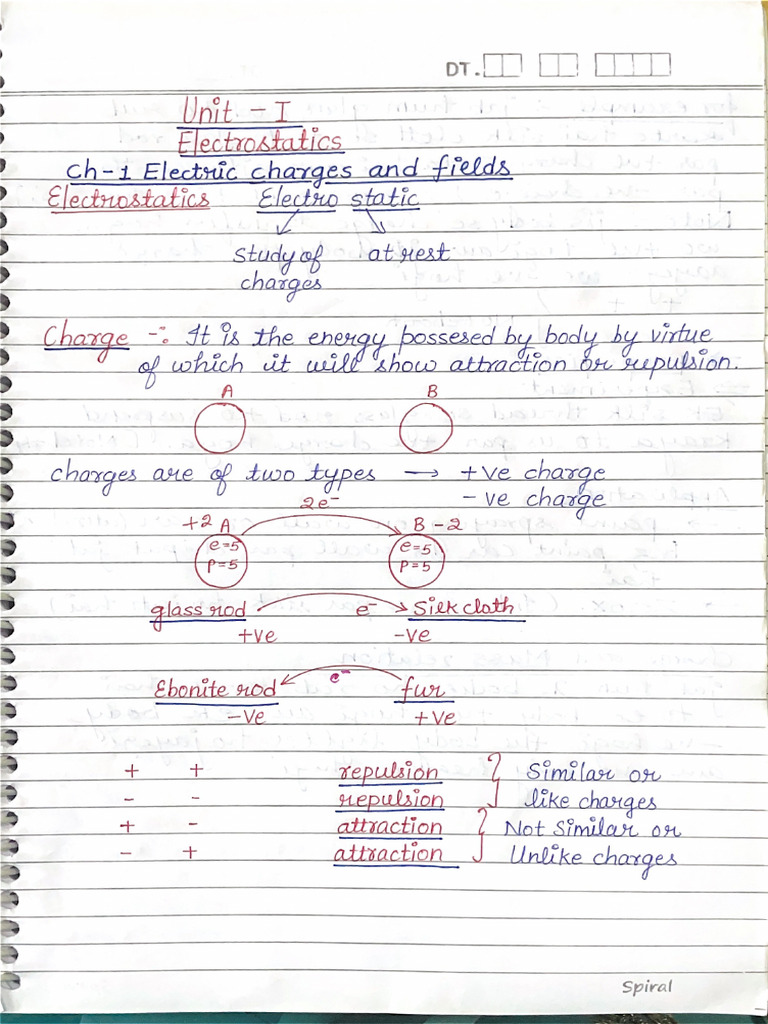 DT.
Unit - I
Electrostatics
Ch-1 Electric charges and fields
Electrostatics Electro static
study of at rest
charges
Charge -: It is the energy possesed by body by virtue
of which it will show attraction or repulsion.
A B
charges are of two types → +ve charge
-ve charge
2e⁻
+2 A B -2
e=5 e=5
P=5 P=5
glass rod e⁻ Silk cloth
+ve -ve
e⁻
Ebonite rod fur
-ve +ve
+ + repulsion Similar or
- - repulsion like charges
+ - attraction Not Similar or
- + attraction Unlike charges
Spiral